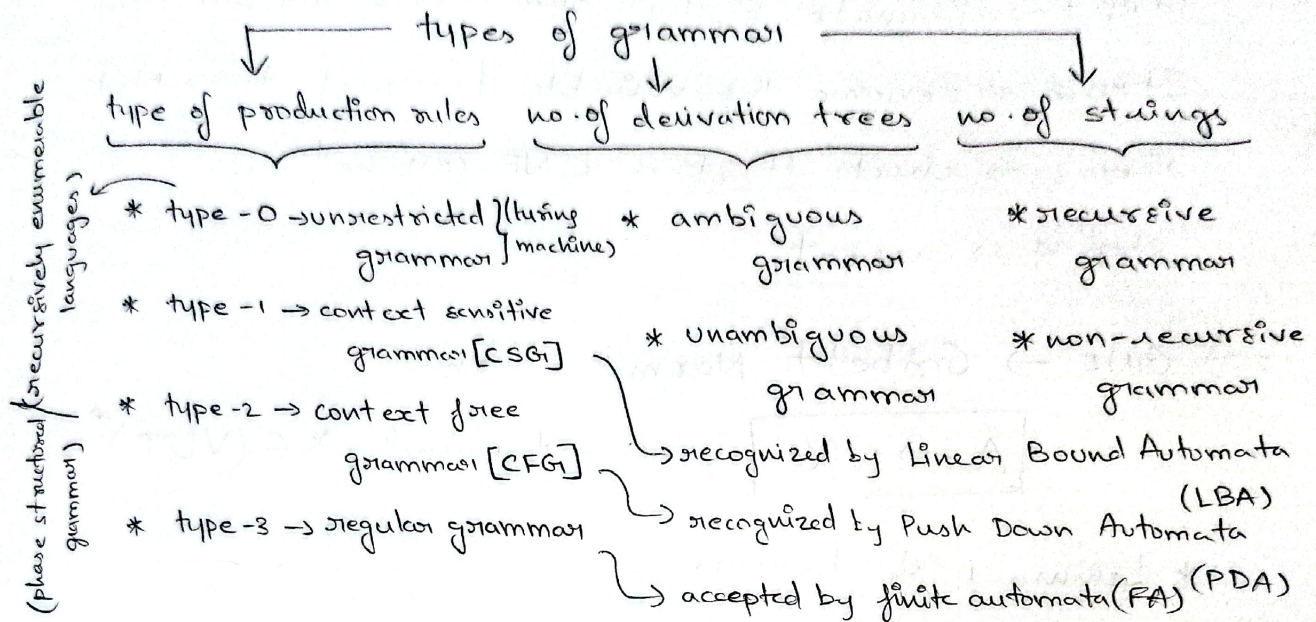 types of grammar
type of production rules no. of derivation trees no. of strings
(phase structured grammar) / (recursively enumerable languages)
* type - 0 → unrestricted grammar } (turing machine)
* type - 1 → context sensitive
grammar [CSG]
* type - 2 → context free
grammar [CFG]
* type - 3 → regular grammar
* ambiguous
grammar
* unambiguous
grammar
* recursive
grammar
* non-recursive
grammar
→ recognized by Linear Bound Automata
(LBA)
→ recognized by Push Down Automata
(PDA)
→ accepted by finite automata (FA)